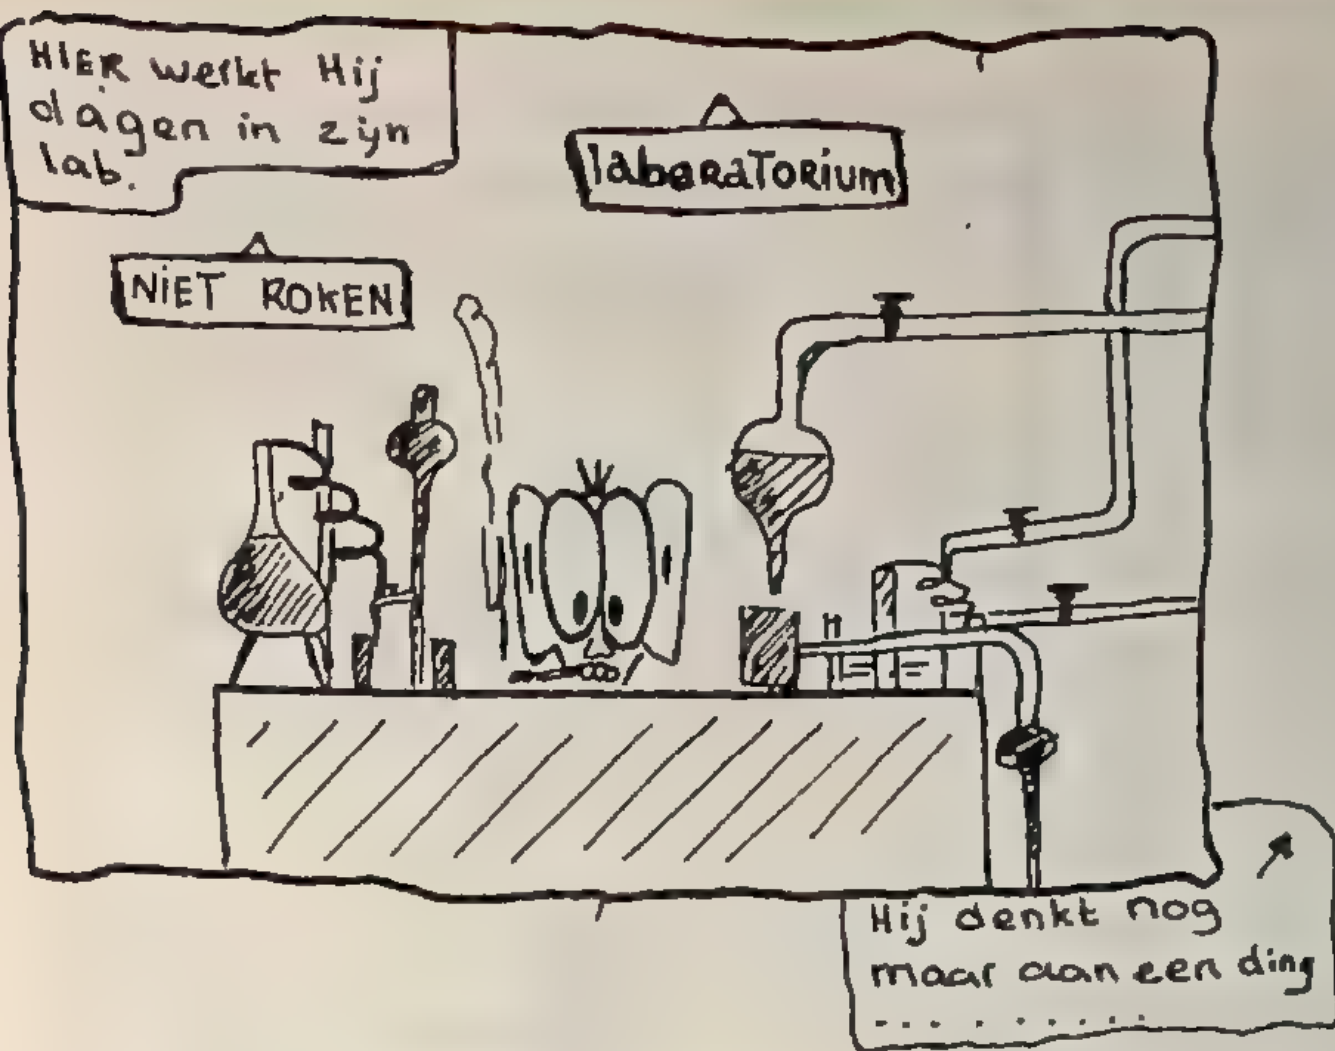 HIER werkt Hij
dagen in zijn
lab.
laboRaTorium
NiET ROKEN
Hij denkt nog
maar aan een ding
. . . . . . . . .